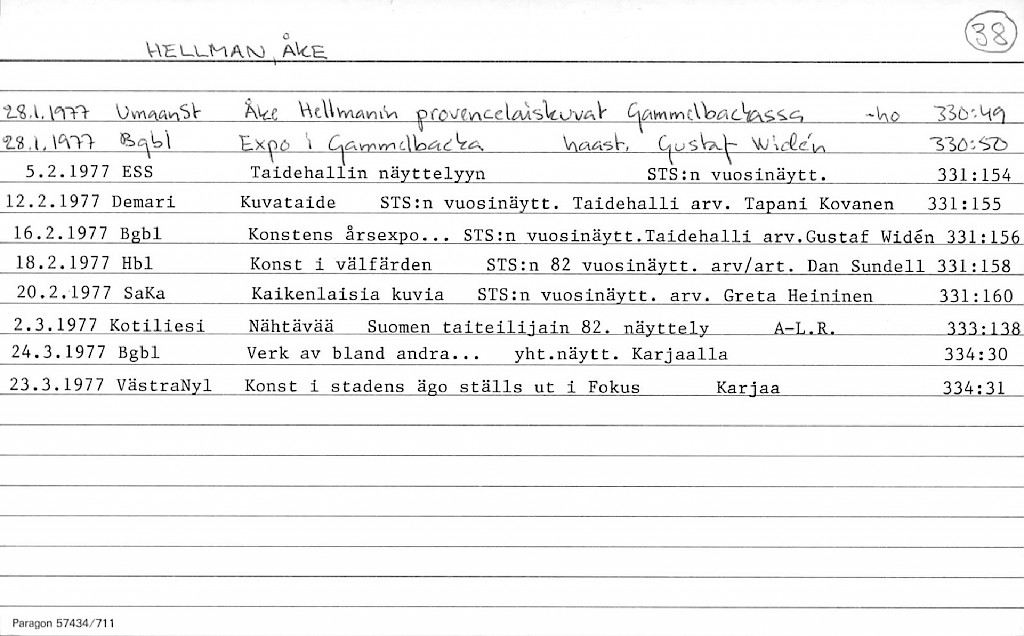 38
HELLMAN, ÅKE
28.1.1977 UmaanSt Åke Hellmanin provencelaiskuvat Gammelbackassa -ho 330:49
28.1.1977 Bgbl Expo i Gammelbacka haast. Gustaf Widén 330:50
5.2.1977 ESS Taidehallin näyttelyyn STS:n vuosinäytt. 331:154
12.2.1977 Demari Kuvataide STS:n vuosinäytt. Taidehalli arv. Tapani Kovanen 331:155
16.2.1977 Bgbl Konstens årsexpo... STS:n vuosinäytt.Taidehalli arv.Gustaf Widén 331:156
18.2.1977 Hbl Konst i välfärden STS:n 82 vuosinäytt. arv/art. Dan Sundell 331:158
20.2.1977 SaKa Kaikenlaisia kuvia STS:n vuosinäytt. arv. Greta Heininen 331:160
2.3.1977 Kotiliesi Nähtävää Suomen taiteilijain 82. näyttely A-L.R. 333:138
24.3.1977 Bgbl Verk av bland andra... yht.näytt. Karjaalla 334:30
23.3.1977 VästraNyl Konst i stadens ägo ställs ut i Fokus Karjaa 334:31
Paragon 57434/711